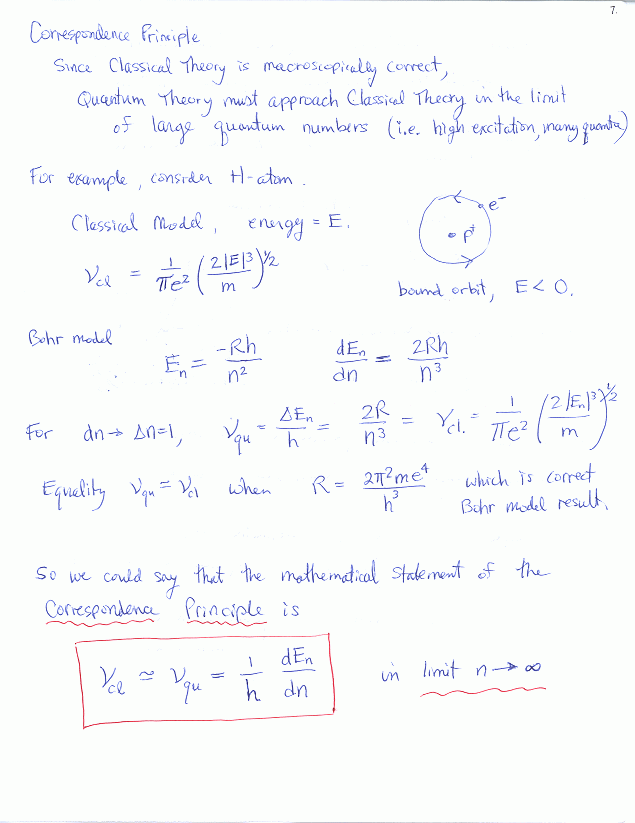 7.
Correspondence Principle
Since Classical Theory is macroscopically correct,
Quantum Theory must approach Classical Theory in the limit
of large quantum numbers (i.e. high excitation, many quanta)
For example, consider H-atom.
Classical Model, energy = E.
e⁻
p⁺
ν_cl = 1/(πe²) (2|E|³/m)^½
bound orbit, E < 0.
Bohr model
E_n = -Rh/n²   dE_n/dn = 2Rh/n³
For dn → Δn=1, ν_qu = ΔE_n/h = 2R/n³ = ν_cl. = 1/(πe²) (2|E_n|³/m)^½
Equality ν_qu = ν_cl when R = 2π²me⁴/h³ which is correct
Bohr model result.
So we could say that the mathematical statement of the
Correspondence Principle is
ν_cl ≃ ν_qu = 1/h dE_n/dn in limit n → ∞